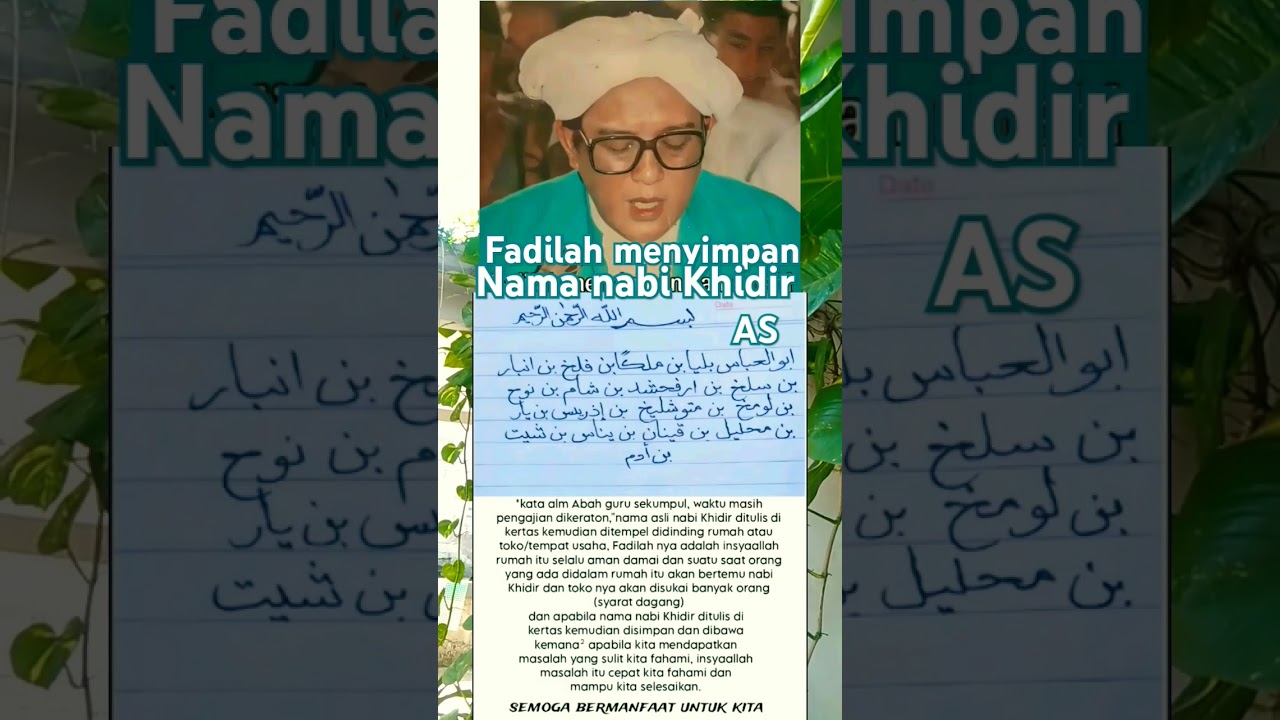 Fadilah menyimpan
Nama nabi Khidir
AS
بسم الله الرحمن الرحيم
ابو العباس بليا بن ملكًا بن فلخ بن انبار
بن سلخ بن ارفحشد بن شام بن نوح
بن لومخ بن متوشليخ بن إذريس بن يار
بن محليل بن قينان بن يناس بن شيت
بن أدم
"kata alm Abah guru sekumpul, waktu masih
pengajian dikeraton,"nama asli nabi Khidir ditulis di
kertas kemudian ditempel didinding rumah atau
toko/tempat usaha, Fadilah nya adalah insyaallah
rumah itu selalu aman damai dan suatu saat orang
yang ada didalam rumah itu akan bertemu nabi
Khidir dan toko nya akan disukai banyak orang
(syarat dagang)
dan apabila nama nabi Khidir ditulis di
kertas kemudian disimpan dan dibawa
kemana² apabila kita mendapatkan
masalah yang sulit kita fahami, insyaallah
masalah itu cepat kita fahami dan
mampu kita selesaikan.
SEMOGA BERMANFAAT UNTUK KITA